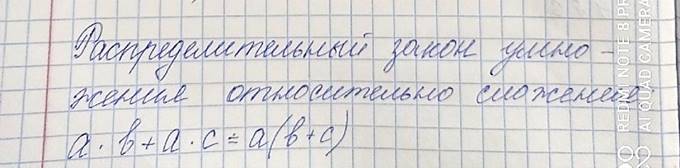 Распределительный закон умно-
жения относительно сложения
a · b + a · c = a(b+c)
REDMI NOTE 8 PR
AI QUAD CAMERA